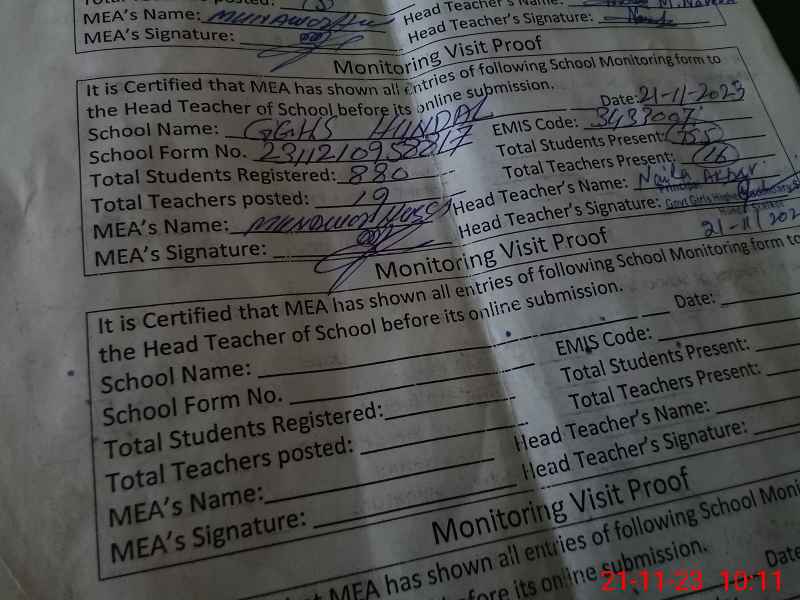 MEA's Name:
MEA's Signature:
Head Teacher's Name:
Head Teacher's Signature:
Monitoring Visit Proof
It is Certified that MEA has shown all entries of following School Monitoring form to
the Head Teacher of School before its online submission.
Date: 21-11-2023
School Name: GGHS HUNDAL
EMIS Code: 3433007
School Form No. 2311210958817
Total Students Present: 755
Total Students Registered: 880
Total Teachers Present: 16
Total Teachers posted: 19
Head Teacher's Name: Naila Akbar
MEA's Name:
Head Teacher's Signature:
Principal
Govt Girls High
MEA's Signature:
21-11-202
Monitoring Visit Proof
It is Certified that MEA has shown all entries of following School Monitoring form to
the Head Teacher of School before its online submission.
Date:
School Name:
EMIS Code:
School Form No.
Total Students Present:
Total Students Registered:
Total Teachers Present:
Total Teachers posted:
Head Teacher's Name:
MEA's Name:
Head Teacher's Signature:
MEA's Signature:
Monitoring Visit Proof
that MEA has shown all entries of following School Moni
before its online submission.
Date
21-11-23 10:11